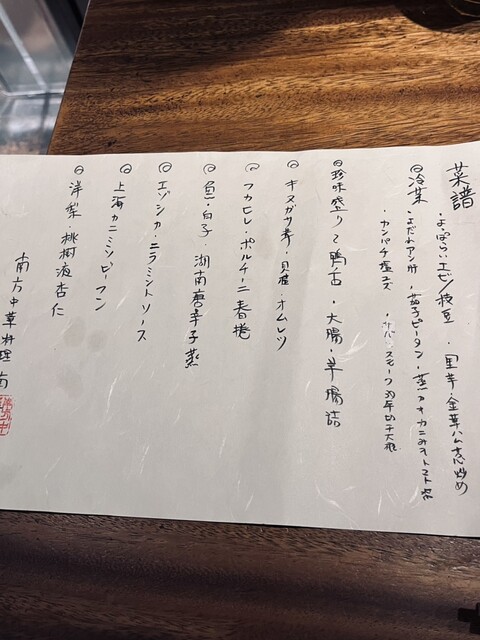 菜譜
・よっぱらいエビ/枝豆 ・里芋・金華ハム 炒め
○冷菜 ・よだれアン肝 ・茄子ピータン・蒸カキカニみそトマト
・カンパチ塩ユズ ・スモーク 大根
○珍味盛り 鴨舌・大腸・羊腸詰
○キヌガサ茸・貝柱・オムレツ
○フカヒレ・ポルチーニ春捲
○魚・白子・湖南唐辛子蒸
○エゾシカ・ニラミントソース
○上海カニミソビーフン
○洋梨 桃樹液 杏仁
南方中華料理 南